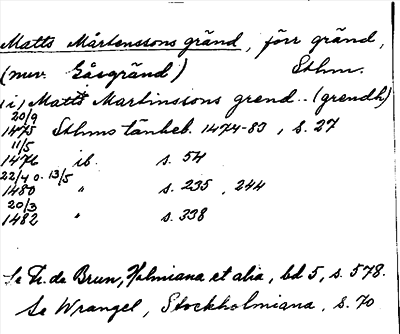 Matts Mårtenssons gränd, förr gränd,
(nuv. Gåsgränd) Sthm.
(i) Matts Martinssons grend.. (grendh)
20/9
1475 Sthms tänkeb. 1474-83, s. 27
11/5
1476 ib. s. 54
22/4 o. 13/5
1480 " s. 235, 244
20/3
1482 " s. 338
Se Fr. de Brun, Holmiana et alia, bd 5, s. 578.
Se Wrangel, Stockholmiana, s. 70